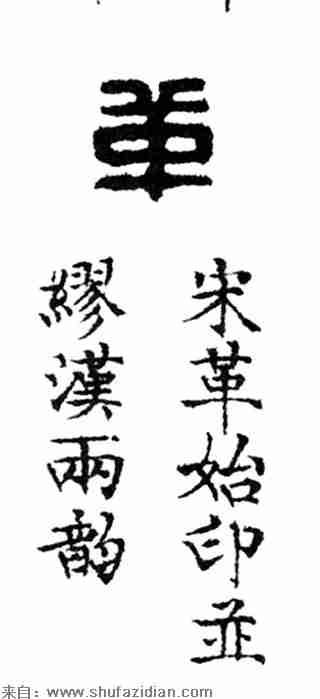 革
宋革始印並
繆漢兩韵
来自：www.shufazidian.com